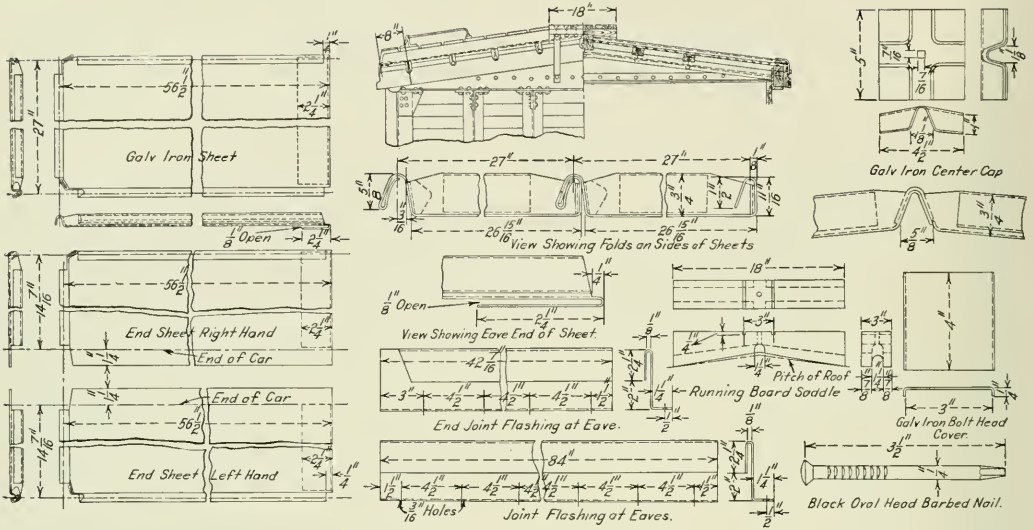 1"
56 1/2"
2 1/4"
27"
Galv Iron Sheet
1/8" Open
2 1/4"
56 1/2"
14 7/16"
2 1/4"
End Sheet Right Hand
End of Car
1 1/4"
1 1/4"
End of Car
56 1/2"
14 7/16"
2 1/4"
End Sheet Left Hand
1/4"
18"
8"
27" 27" 1/8"
5/8" 3/4" 1 1/2" 11/16"
3/16"
26 15/16" 26 15/16"
View Showing Folds on Sides of Sheets
1/4"
1/8" Open
2 1/4"
View Showing Eave End of Sheet.
1/8"
42 7/16"
2 1/4"
1 1/4"
3" 4 1/2" 4 1/2" 4 1/2" 1 1/2"
2"
1/2"
End Joint Flashing at Eave.
1/8"
84"
2 1/4"
1 1/4"
1 1/2" 4 1/2" 4 1/2" 4 1/2" 4 1/2" 4 1/2" 1 1/2"
2"
1/2"
3/16" Holes
Joint Flashing at Eaves.
18"
3" 3"
1/4"
1 1/4"
Pitch of Roof
7/8" 1 1/4" 7/8"
Running Board Saddle
5"
7/16"
7/16"
1/8"
1"
1/8"
4 1/2"
Galv Iron Center Cap
3/4"
5/8"
4"
1/4"
3"
Galv Iron Bolt Head
Cover.
3 1/2"
1/4"
Black Oval Head Barbed Nail.